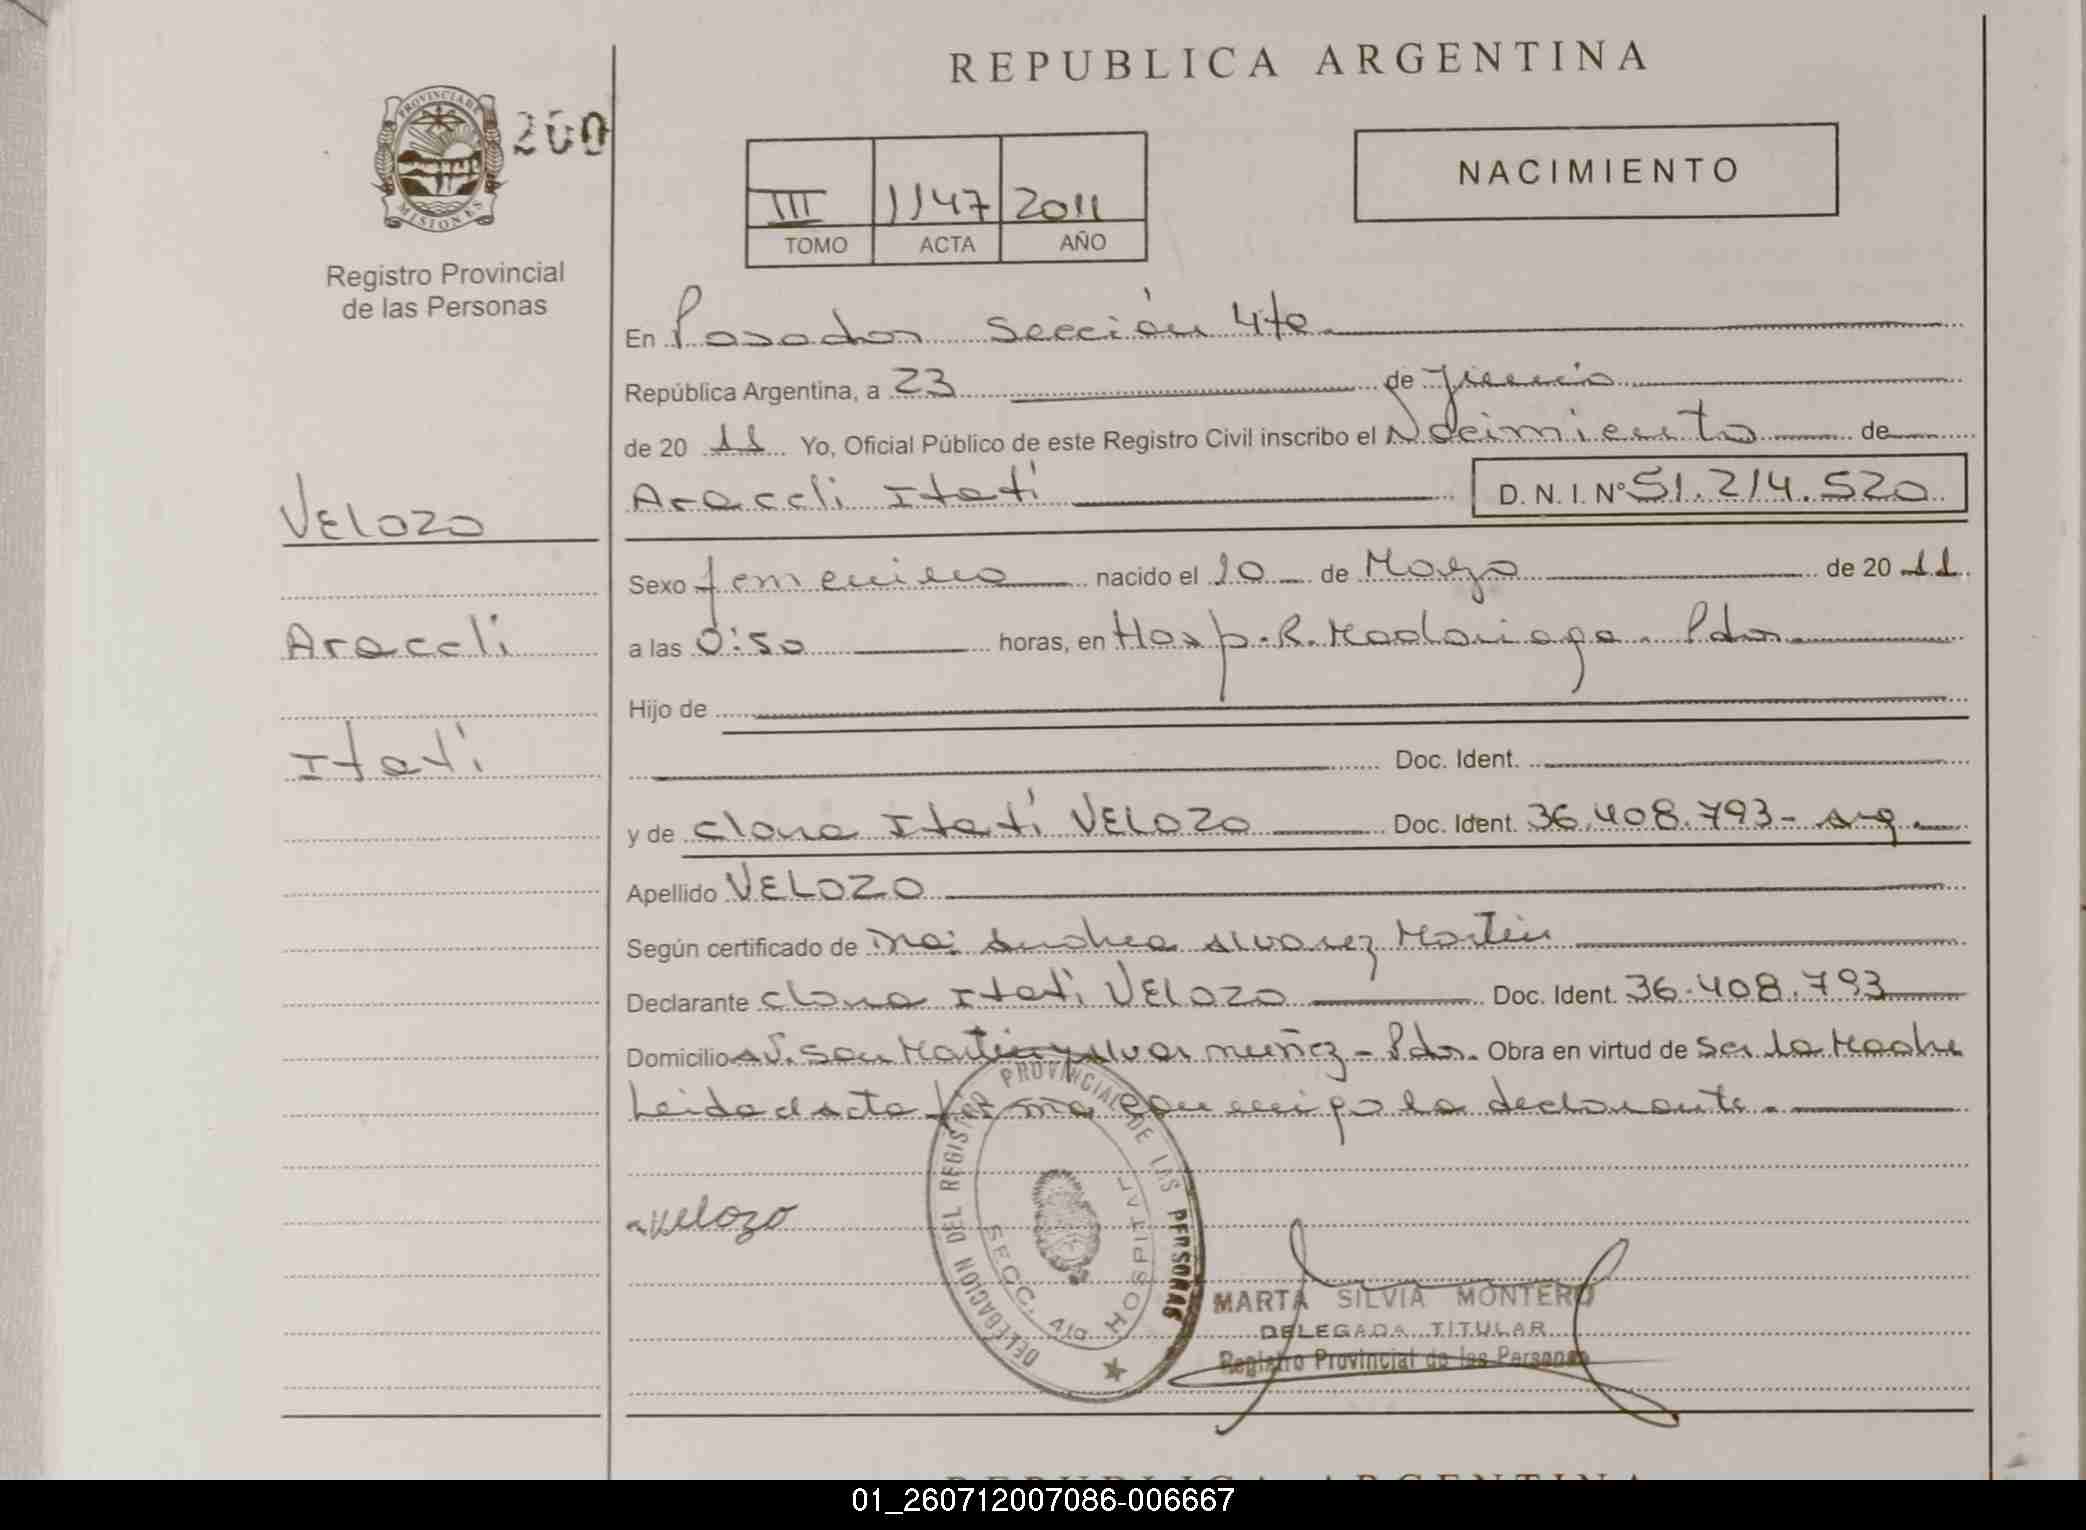 REPUBLICA ARGENTINA
PROVINCIA DE
MISIONES
200
Registro Provincial
de las Personas
III 1147 2011
TOMO ACTA AÑO
NACIMIENTO
En Posadas Sección 4ta
República Argentina, a 23 de Junio
de 20 11 Yo, Oficial Público de este Registro Civil inscribo el Nacimiento de
Araceli Itatí D.N.I. Nº 51.214.520
VELOZO
Araceli
Itatí
Sexo femenino nacido el 10 de Marzo de 20 11
a las 0:50 horas, en Hosp. R. Madariaga. Pdas.
Hijo de
Doc. Ident.
y de Itatí VELOZO Doc. Ident. 36.408.793- arg.
Apellido VELOZO
Según certificado de Andrea Alvarez Martin
Declarante Itatí VELOZO Doc. Ident. 36.408.793
Domicilio Av. San Martin y Alvar nuñez - Pdas. Obra en virtud de Ser la Madre
Leida el acta firma conmigo la declarante.
velozo
DELEGACION DEL REGISTRO PROVINCIAL DE LAS PERSONAS
SECC. 4ta HOSPITAL
MARTA SILVIA MONTERO
DELEGADA TITULAR
Registro Provincial de las Personas
REPUBLICA ARGENTINA
01_260712007086-006667